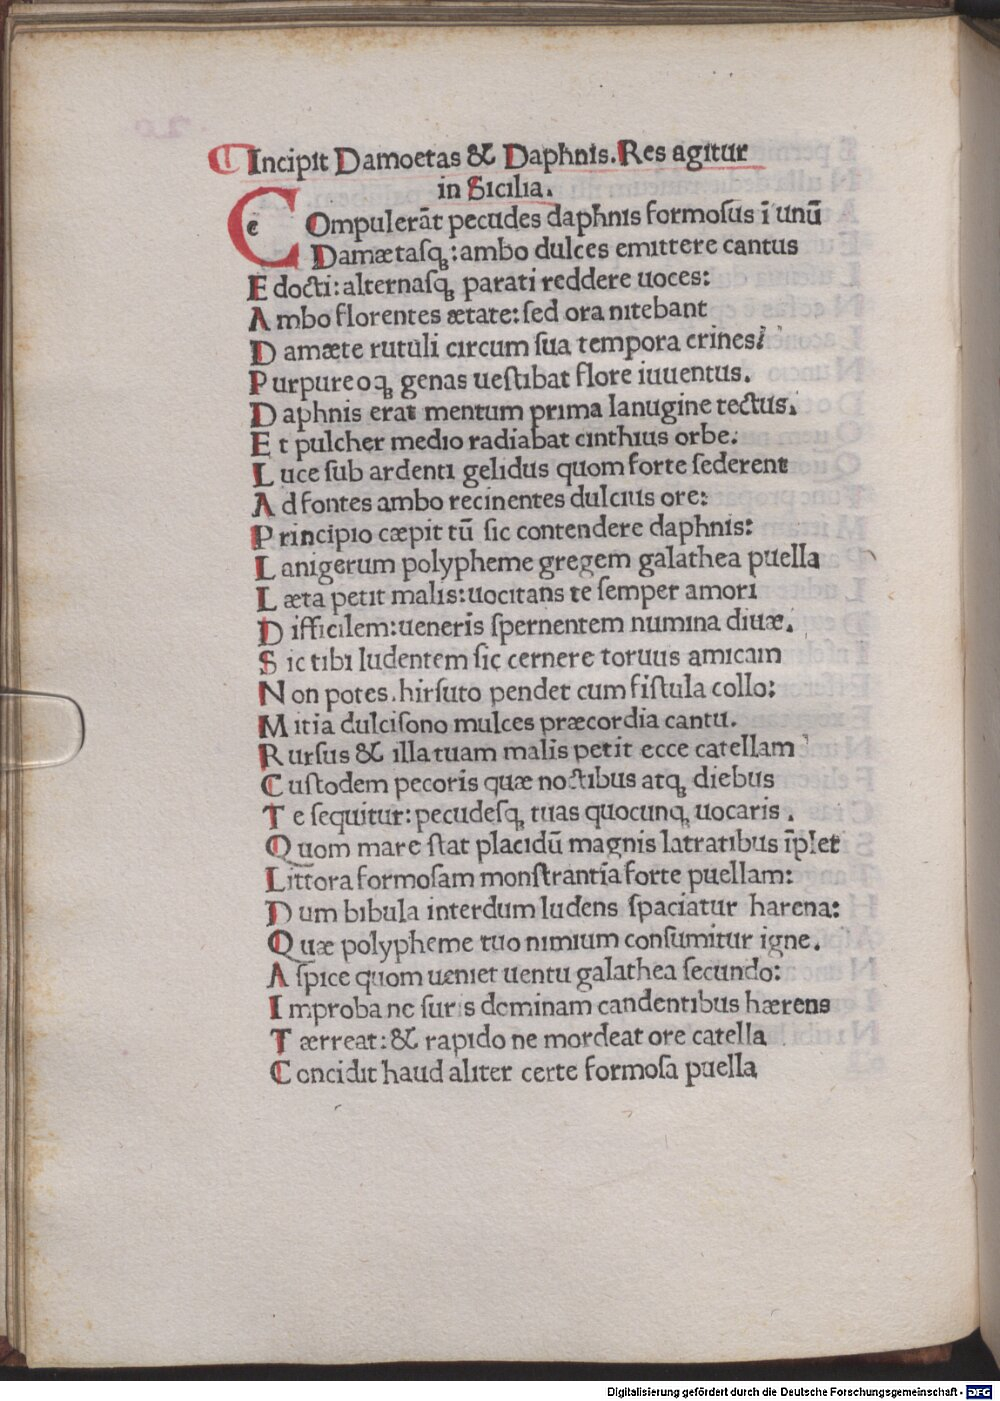 Incipit Damoetas & Daphnis. Res agitur
in Sicilia.
COmpulerāt pecudes daphnis formoſus ī unū
Damætaſqꝫ: ambo dulces emittere cantus
E docti: alternaſqꝫ parati reddere uoces:
A mbo florentes ætate: ſed ora nitebant
D amæte rutuli circum ſua tempora crines:
P urpureoqꝫ genas ueſtibat flore iuuentus.
D aphnis erat mentum prima lanugine tectus.
E t pulcher medio radiabat cinthius orbe.
L uce ſub ardenti gelidus quom forte ſederent
A d fontes ambo recinentes dulcius ore:
P rincipio cæpit tū ſic contendere daphnis:
L anigerum polypheme gregem galathea puella
L æta petit malis: uocitans te ſemper amori
D ifficilem: ueneris ſpernentem numina diuæ.
S ic tibi ludentem ſic cernere toruus amicam
N on potes. hirſuto pendet cum fiſtula collo:
M itia dulciſono mulces præcordia cantu.
R urſus & illa tuam malis petit ecce catellam
C uſtodem pecoris quæ noctibus atqꝫ diebus
T e ſequitur: pecudeſqꝫ tuas quocunqꝫ uocaris.
Q uom mare ſtat placidū magnis latratibus īplet
L ittora formoſam monſtrantia forte puellam:
D um bibula interdum ludens ſpaciatur harena:
Q uæ polypheme tuo nimium conſumitur igne.
A ſpice quom ueniet uentu galathea ſecundo:
I mproba ne ſuris dominam candentibus hærens
T ærreat: & rapido ne mordeat ore catella
C oncidit haud aliter certe formoſa puella
Digitalisierung gefördert durch die Deutsche Forschungsgemeinschaft - DFG